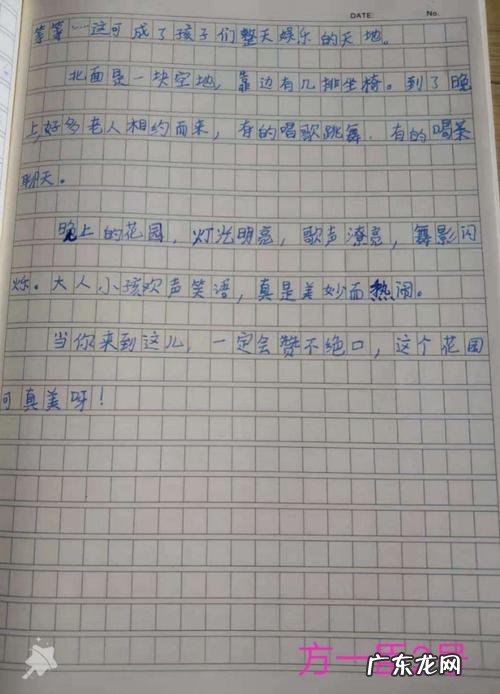 DATE: No.
等等……这可成了孩子们整天娱乐的天地。
北面是一块空地，靠边有几排坐椅。到了晚
上，好多老人相约而来，有的唱歌跳舞，有的喝茶
聊天。
晚上的花园，灯光明亮，歌声潦亮，舞影闪
烁。大人小孩欢声笑语，真是美妙而热闹。
当你来到这儿，一定会赞不绝口，这个花园
可真美呀！
方一
广东龙网